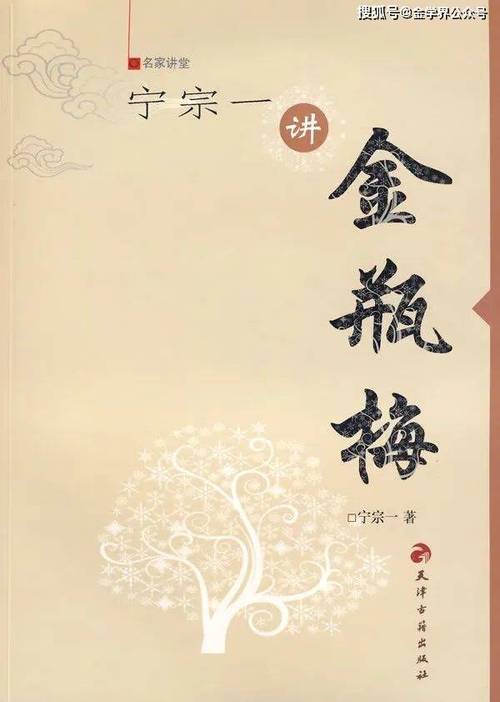 搜狐号@金学界公众号
名家讲堂
宁宗一
讲
金瓶梅
□宁宗一 著
天津古籍出版社